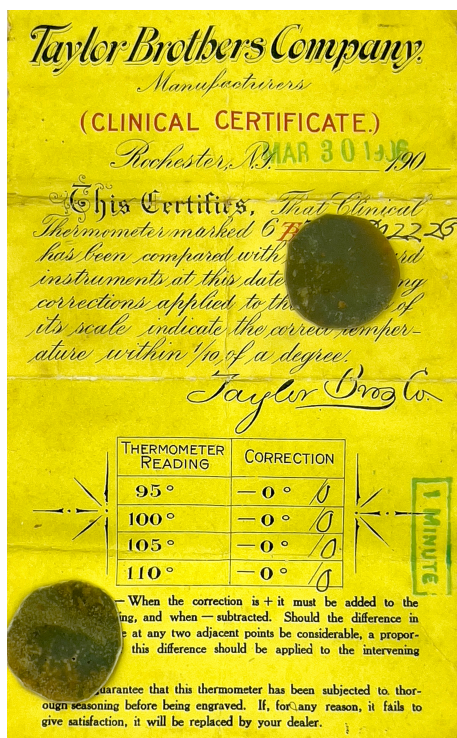 Taylor Brothers Company.
Manufacturers
(CLINICAL CERTIFICATE.)
Rochester, N.Y. MAR 30 1906 190
This Certifies, That Clinical
Thermometer marked 6
has been compared with
instruments at this date
corrections applied to of
its scale indicate the correct temper-
ature within 1/10 of a degree.
Taylor Bros Co.
THERMOMETER READING CORRECTION
95° – 0 ° /0
100° – 0 ° /0
105° – 0 ° /0
110° – 0 ° /0
1 MINUTE
— When the correction is + it must be added to the
and when — subtracted. Should the difference in
at any two adjacent points be considerable, a propor-
this difference should be applied to the intervening
that this thermometer has been subjected to thor-
ough seasoning before being engraved. If, for any reason, it fails to
give satisfaction, it will be replaced by your dealer.